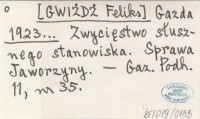 [GWIŻDŻ Feliks] Gazda
1923... Zwycięstwo słusz-
nego stanowiska. Sprawa
Jaworzyny. — Gaz. Podh.
11, nr 35.